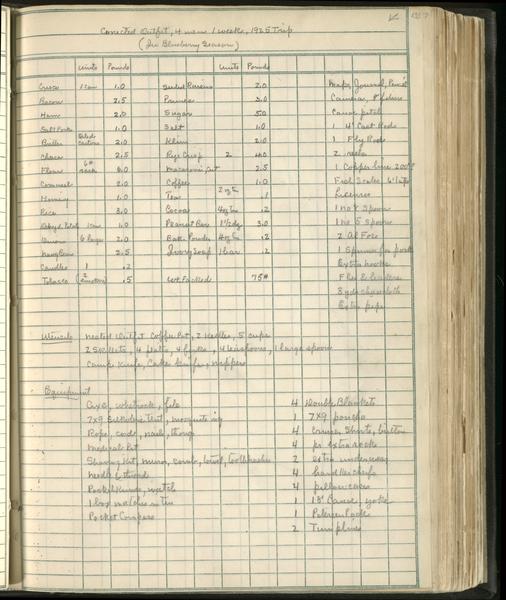 Corrected Outfit, 4 men 1 weeks, 1925 Trip
(In Blueberry Season)
Units Pounds Units Pounds
Crisco 1 can 1.0 Seeded Raisins 2.0 Maps, Journal, Pencil
Bacon 2.5 Prunes 3.0 Camera, films
Ham 2.0 Sugar 5.0 Canoe patch
Salt Pork 1.0 Salt 1.0 1 4' Cast Rods
Butter cartons 2.0 Klim 2.0 1 Fly Rod
Cheese 2.5 Rye Crisp 2 4.0 2 reels
Flour 6# sack 6.0 Macaroni Cut 2.5 1 Copper line 200 ft
Cornmeal 2.0 Coffee 1.0 Fish Scales
Honey 1.0 Tea 2 oz .1 Licenses
Rice 3.0 Cocoa 4 oz .2 1 no 4 Spoon
1 can 1.0 Peanut Bars 1½ dz 3.0 1 no 5 spoon
Onions 6 large 2.0 Bak. Powder 4 oz .2 2 Al Foss
Navy Beans 2.5 Ivory Soap 1 bar .2 1 Spinner for pork
Candles 1 .2 Extra hooks
Tobacco .5 Wt. Packed 75# Flies & leaders
3 yds cheesecloth
Extra pipe
Utensils nested Outfit Coffee Pot, 2 Kettles, 5 cups
2 Skillets, 4 plates, 4 forks, 4 teaspoons, 1 large spoon
Camp Knife, Cake turner, nappers
Equipment
Axe, whetrock, file 4 Double Blankets
7x9 Tent, mosquito 1 7x9 poncho
Rope, cord, nails, thong 4 Canvas, Shorts, button
Medical Kit 4 pr extra socks
Shaving Kit, mirror, comb, towel, toothbrushes 2 extra underwear
needle & thread 4 handkerchiefs
Pocket Knives, watch 4 pillow cases
1 box matches in tin 1 18' Canoe, yoke
Pocket Compass 1 Poirier Pack
2 Tumplines